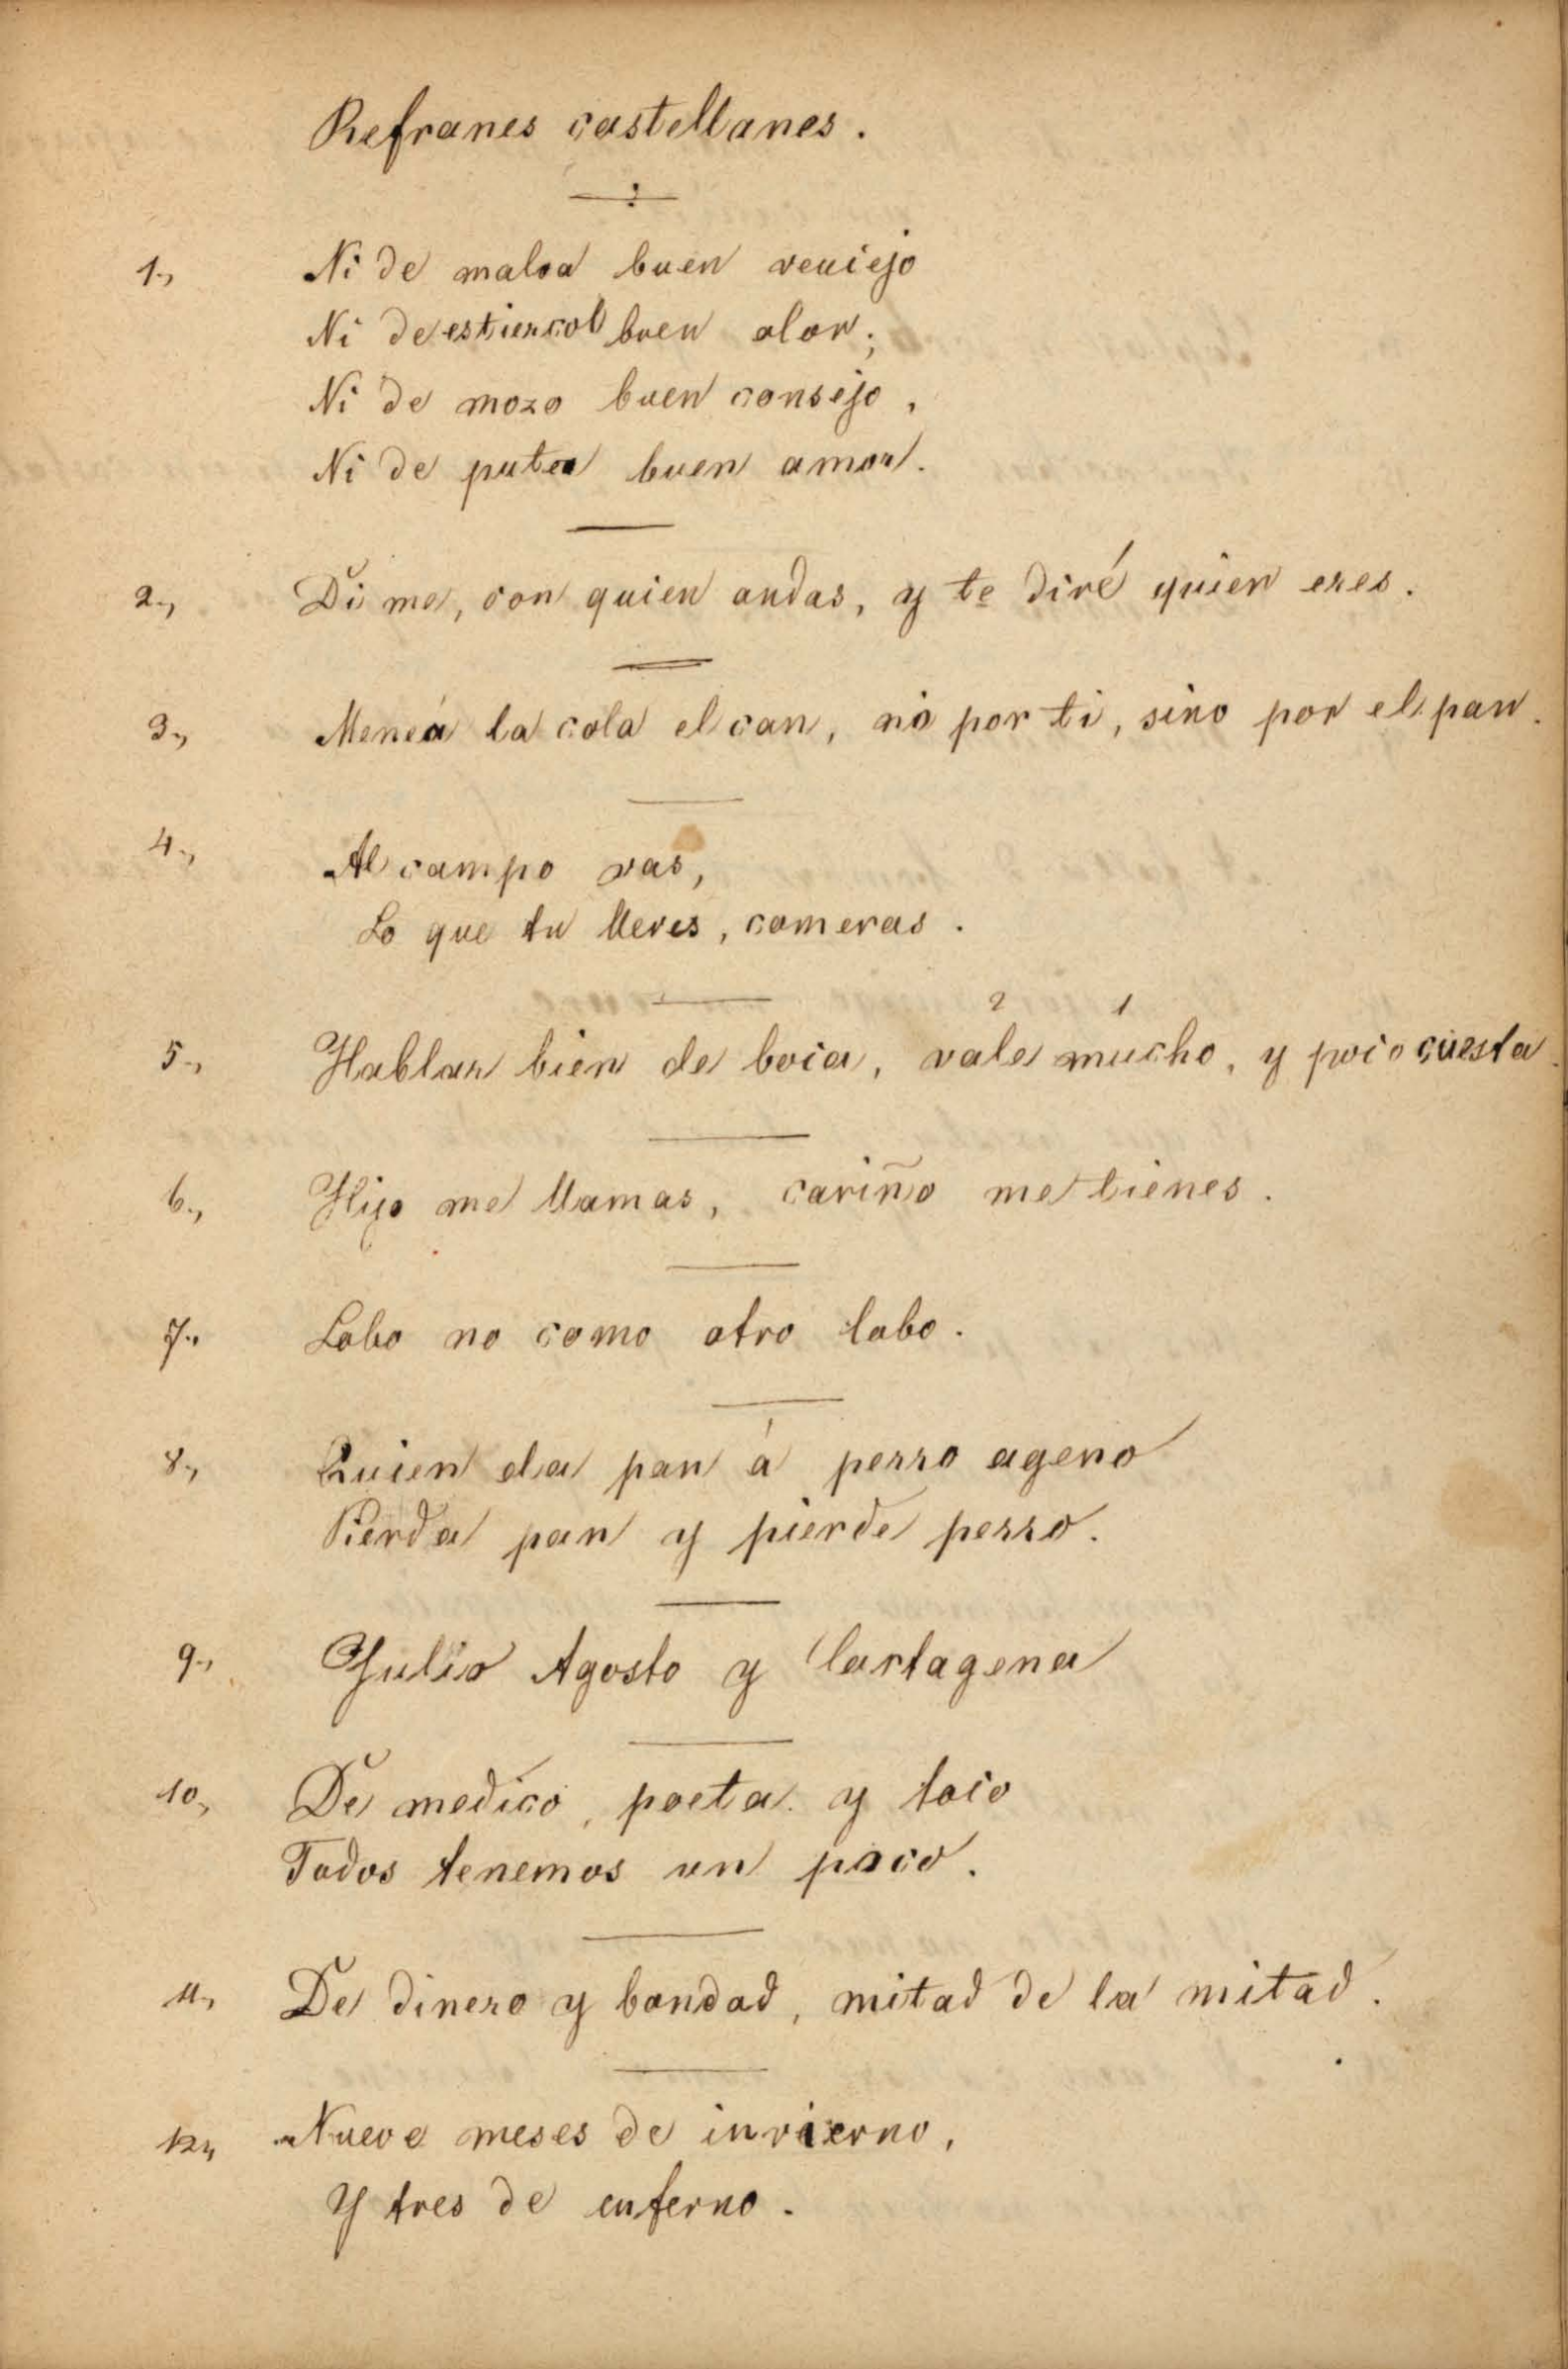 Refranes castellanes.
1., Ni de malva buen venciejo
Ni de estiercol buen olor;
Ni de mozo buen consejo,
Ni de puta buen amor.
2., Di me, con quien andas, y te diré quien eres.
3., Menea la cola el can, no por ti, sino por el pan.
4., Al campo vas,
Lo que tu lleves, comeras.
2 1
5., Hablar bien de boca, vale mucho, y poco cuesta.
6., Hijo me llamas, cariño me tienes.
7., Lobo no como otro lobo.
8., Quien da pan á perro ageno
Pierda pan y pierde perro.
9., Julio Agosto y Cartagena
10., De medico, poeta y loco
Todos tenemos un poco.
11., De dinero y bondad, mitad de la mitad.
12., Nueve meses de invierno,
Y tres de enferno.